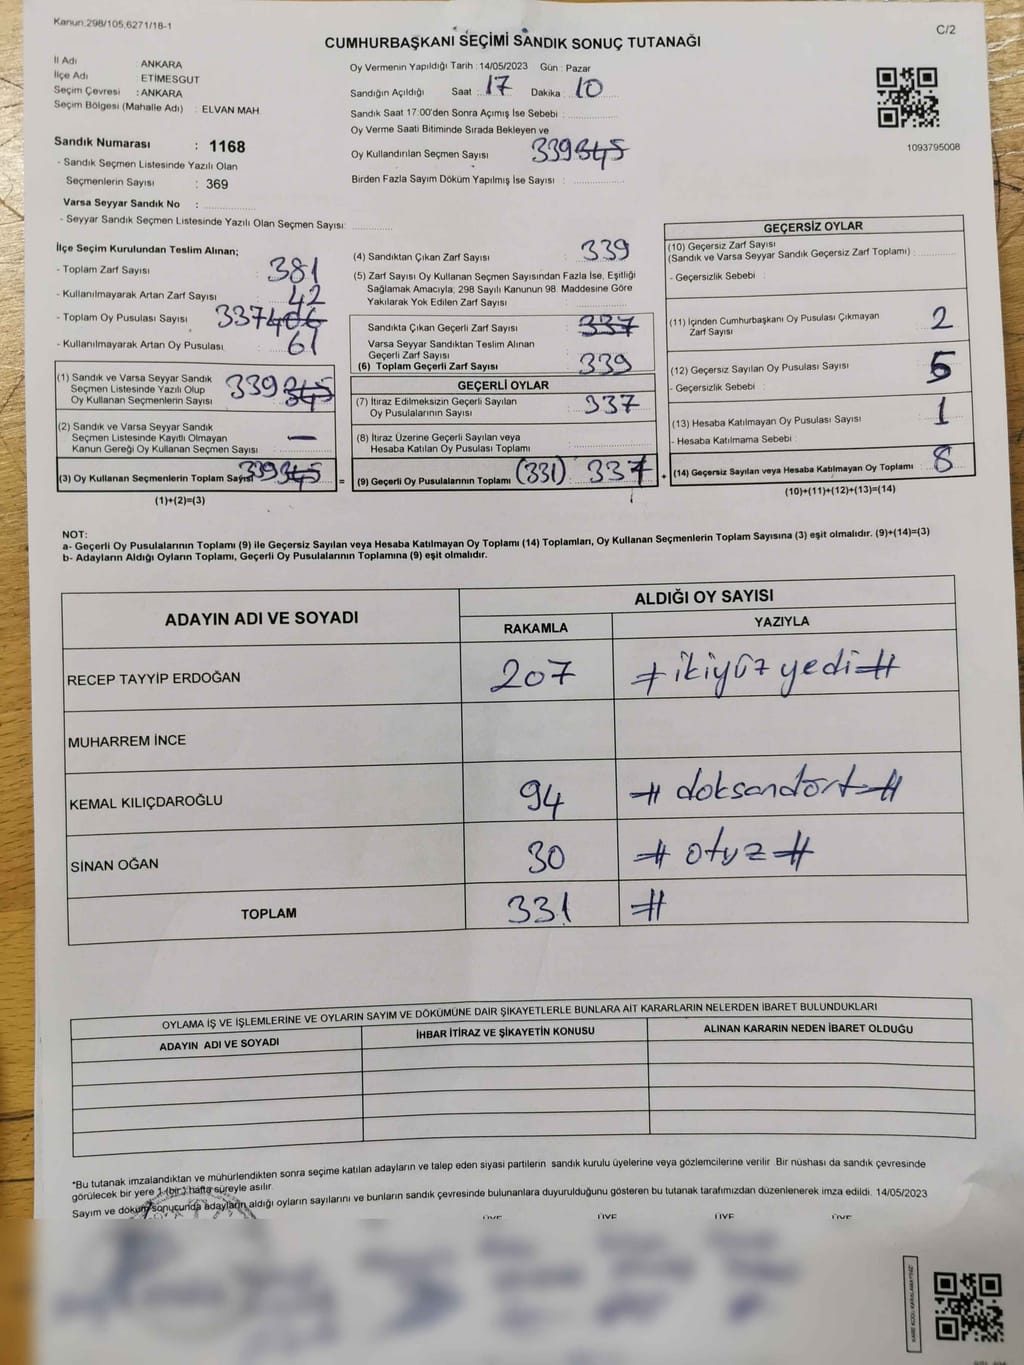 Kanun:298/105,6271/18-1
C/2
CUMHURBAŞKANI SEÇİMİ SANDIK SONUÇ TUTANAĞI
İl Adı : ANKARA
İlçe Adı : ETİMESGUT
Seçim Çevresi : ANKARA
Seçim Bölgesi (Mahalle Adı) : ELVAN MAH.
Oy Vermenin Yapıldığı Tarih : 14/05/2023 Gün : Pazar
Sandığın Açıldığı Saat : 17 Dakika : 10
Sandık Saat 17:00'den Sonra Açımış İse Sebebi :
Oy Verme Saati Bitiminde Sırada Bekleyen ve
Oy Kullandırılan Seçmen Sayısı 339 345
Birden Fazla Sayım Döküm Yapılmış İse Sayısı :
1093795008
Sandık Numarası : 1168
- Sandık Seçmen Listesinde Yazılı Olan
Seçmenlerin Sayısı : 369
Varsa Seyyar Sandık No :
- Seyyar Sandık Seçmen Listesinde Yazılı Olan Seçmen Sayısı:
İlçe Seçim Kurulundan Teslim Alınan;
- Toplam Zarf Sayısı 381
- Kullanılmayarak Artan Zarf Sayısı 42
- Toplam Oy Pusulası Sayısı 337 406
- Kullanılmayarak Artan Oy Pusulası 61
(1) Sandık ve Varsa Seyyar Sandık
Seçmen Listesinde Yazılı Olup
Oy Kullanan Seçmenlerin Sayısı 339 345
(2) Sandık ve Varsa Seyyar Sandık
Seçmen Listesinde Kayıtlı Olmayan
Kanun Gereği Oy Kullanan Seçmen Sayısı —
(3) Oy Kullanan Seçmenlerin Toplam Sayısı 339 345
(1)+(2)=(3)
(4) Sandıktan Çıkan Zarf Sayısı 339
(5) Zarf Sayısı Oy Kullanan Seçmen Sayısından Fazla İse, Eşitliği
Sağlamak Amacıyla, 298 Sayılı Kanunun 98. Maddesine Göre
Yakılarak Yok Edilen Zarf Sayısı :
Sandıkta Çıkan Geçerli Zarf Sayısı : 337
Varsa Seyyar Sandıktan Teslim Alınan
Geçerli Zarf Sayısı
(6) Toplam Geçerli Zarf Sayısı : 339
GEÇERLİ OYLAR
(7) İtiraz Edilmeksizin Geçerli Sayılan
Oy Pusulalarının Sayısı : 337
(8) İtiraz Üzerine Geçerli Sayılan veya
Hesaba Katılan Oy Pusulası Toplamı
= (9) Geçerli Oy Pusulalarının Toplamı (331) 337
GEÇERSİZ OYLAR
(10) Geçersiz Zarf Sayısı
(Sandık ve Varsa Seyyar Sandık Geçersiz Zarf Toplamı) :
- Geçersizlik Sebebi :
(11) İçinden Cumhurbaşkanı Oy Pusulası Çıkmayan
Zarf Sayısı 2
(12) Geçersiz Sayılan Oy Pusulası Sayısı 5
- Geçersizlik Sebebi :
(13) Hesaba Katılmayan Oy Pusulası Sayısı 1
- Hesaba Katılmama Sebebi :
+ (14) Geçersiz Sayılan veya Hesaba Katılmayan Oy Toplamı 8
(10)+(11)+(12)+(13)=(14)
NOT:
a- Geçerli Oy Pusulalarının Toplamı (9) ile Geçersiz Sayılan veya Hesaba Katılmayan Oy Toplamı (14) Toplamları, Oy Kullanan Seçmenlerin Toplam Sayısına (3) eşit olmalıdır. (9)+(14)=(3)
b- Adayların Aldığı Oyların Toplamı, Geçerli Oy Pusulalarının Toplamına (9) eşit olmalıdır.
ADAYIN ADI VE SOYADI
ALDIĞI OY SAYISI
RAKAMLA YAZIYLA
RECEP TAYYİP ERDOĞAN 207 # ikiyüz yedi #
MUHARREM İNCE
KEMAL KILIÇDAROĞLU 94 # doksandört #
SİNAN OĞAN 30 # otuz #
TOPLAM 331 #
OYLAMA İŞ VE İŞLEMLERİNE VE OYLARIN SAYIM VE DÖKÜMÜNE DAİR ŞİKAYETLERLE BUNLARA AİT KARARLARIN NELERDEN İBARET BULUNDUKLARI
ADAYIN ADI VE SOYADI İHBAR İTİRAZ VE ŞİKAYETİN KONUSU ALINAN KARARIN NEDEN İBARET OLDUĞU
*Bu tutanak imzalandıktan ve mühürlendikten sonra seçime katılan adayların ve talep eden siyasi partilerin sandık kurulu üyelerine veya gözlemcilerine verilir. Bir nüshası da sandık çevresinde
görülecek bir yere 1 (bir) hafta süreyle asılır.
Sayım ve döküm sonucunda adayların aldığı oyların sayılarını ve bunların sandık çevresinde bulunanlara duyurulduğunu gösteren bu tutanak tarafımızdan düzenlenerek imza edildi. 14/05/2023
ÜYE ÜYE ÜYE ÜYE